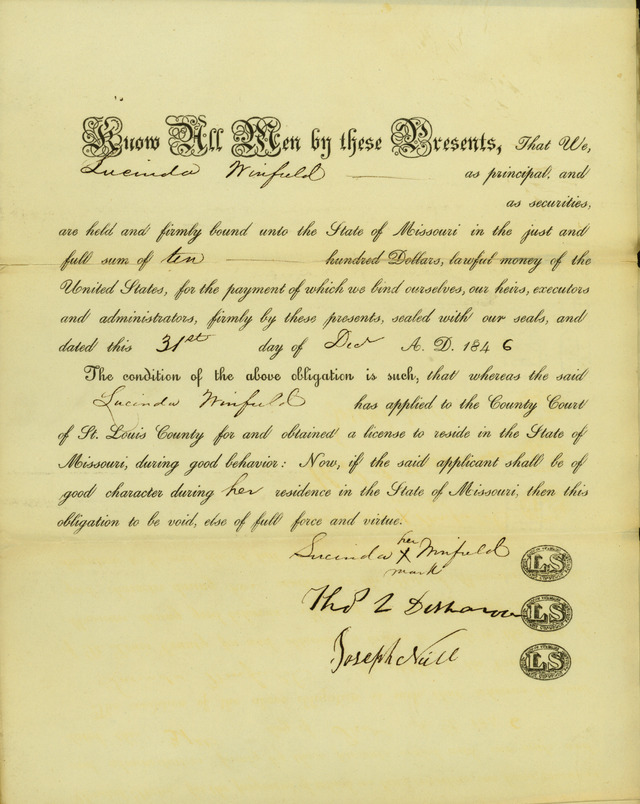 Know All Men by these Presents, That We,
Lucinda Winfield as principal, and
as securities,
are held and firmly bound unto the State of Missouri in the just and
full sum of ten hundred Dollars, lawful money of the
United States, for the payment of which we bind ourselves, our heirs, executors
and administrators, firmly by these presents, sealed with our seals, and
dated this 31st day of Dec A. D. 1846
The condition of the above obligation is such, that whereas the said
Lucinda Winfield has applied to the County Court
of St. Louis County for and obtained a license to reside in the State of
Missouri, during good behavior: Now, if the said applicant shall be of
good character during her residence in the State of Missouri, then this
obligation to be void, else of full force and virtue.
her
Lucinda X Winfield LS
mark
Thos LS
Joseph Null LS